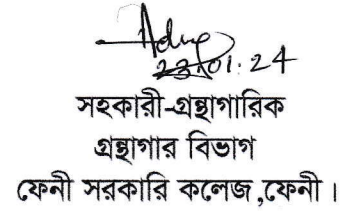 23.01.24
সহকারী-গ্রন্থাগারিক
গ্রন্থাগার বিভাগ
ফেনী সরকারি কলেজ,ফেনী।